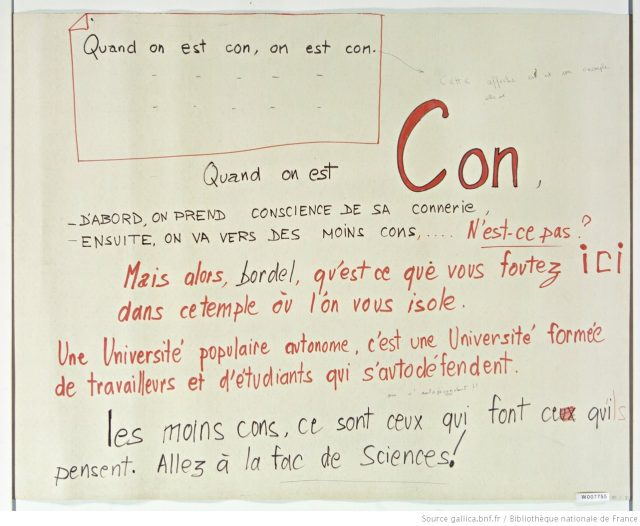 Quand on est con, on est con.
Cette affiche est un exemple
Quand on est Con,
- D'ABORD, ON PREND CONSCIENCE DE SA CONNERIE,
- ENSUITE, ON VA VERS DES MOINS CONS, .... N'est-ce pas ?
Mais alors, bordel, qu'est ce que vous foutez ici
dans ce temple où l'on vous isole.
Une Université populaire autonome, c'est une Université formée
de travailleurs et d'étudiants qui s'autodéfendent.
les moins cons, ce sont ceux qui font ce qu'ils
pensent. Allez à la fac de Sciences!
W007755
Source gallica.bnf.fr / Bibliothèque nationale de France